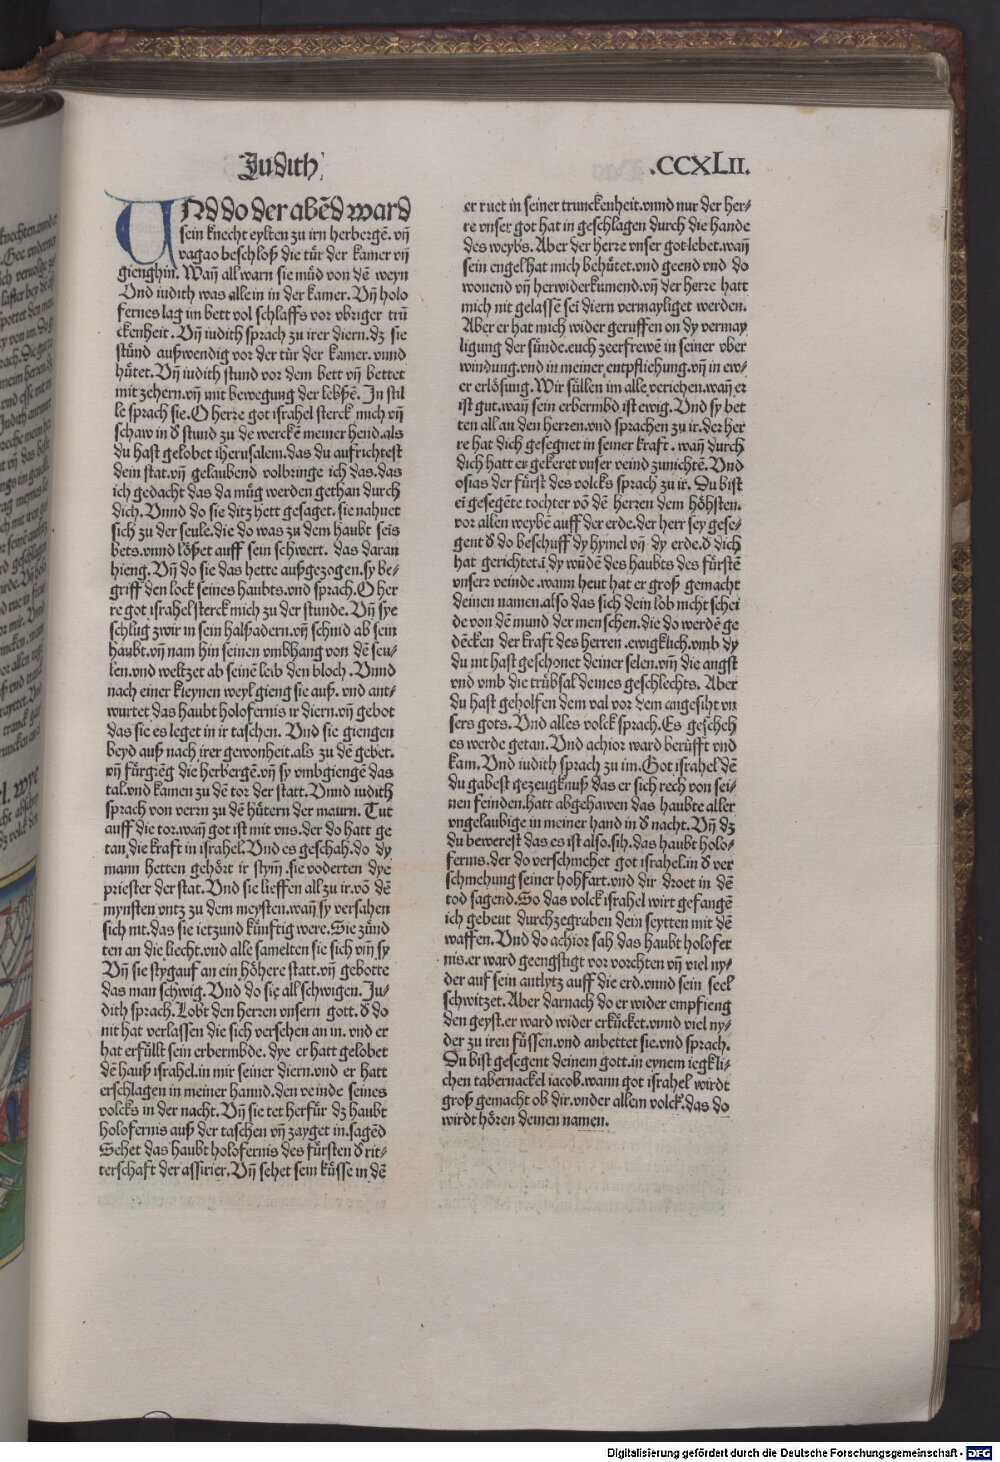 Judith
.CCXLII.
UNd do der abēd ward
sein knecht eylten zu irn herbergē. vñ
vagao beschloß die tür der kamer vñ
gienghin. Wañ all warn sie müd von dē weyn
Vnd iudith was allein in der kamer. Vñ holo
fernes lag im bett vol schlaffs vor vbriger trū
ckenheit. Vñ iudith sprach zu irer diern. dz sie
stünd außwendig vor der tür der kamer. vnnd
hütet. Vñ iudith stund vor dem bett vñ bettet
mit zehern. vñ mit bewegung der lebßē. In stil
le sprach sie. O herre got israhel sterck mich vñ
schaw in d stund zu de werckē meiner hend. als
du hast gelobet iherusalem. das du aufrichtest
dein stat. vñ gelaubend volbringe ich das. das
ich gedacht das da müg werden gethan durch
dich. Vnnd do sie ditz hett gesaget. sie nahnet
sich zu der seule. die do was zu dem haubt seis
bets. vnnd lößet auff sein schwert. das daran
hieng. Vñ do sie das hette außgezogen. sy be-
griff den lock seines haubts. vnd sprach. O her
re got israhel sterck mich zu der stunde. Vñ sye
schlug zwir in sein halßadern. vñ schnid ab sein
haubt. vñ nam hin seinen vmbhang von dē seu-
len. vnd weltzet ab seinē leib den bloch. Vnnd
nach einer kleynen weyl gieng sie auß. vnd ant-
wurtet das haubt holofernis ir diern. vñ gebot
das sie es leget in ir taschen. Vnd sie giengen
beyd auß nach irer gewonheit. als zu dē gebet.
vñ fürgiēg die herbergē. vñ sy vmbgiengē das
tal. vnd kamen zu dē tor der statt. Vnnd iudith
sprach von verrn zu dē hütern der maurn. Tut
auff die tor. wañ got ist mit vns. der do hatt ge
tan die kraft in israhel. Vnd es geschah. do dy
mann hetten gehört ir stym̄. sie voderten dye
priester der stat. Vnd sie lieffen all zu ir. vō dē
mynsten vntz zu dem meysten. wañ sy versahen
sich nit. das sie ietzund künftig were. Sie zünd
ten an die liecht. vnd alle samelten sie sich vm̄ sy
Vñ sie styg auf an ein höhere statt. vñ gebotte
das man schwig. Vnd do sie all schwigen. Ju-
dith sprach. Lobt den herren vnsern gott. d do
nit hat verlassen die sich versehen an in. vnd er
hat erfüllt sein erbermbde. dye er hatt gelobet
dē hauß israhel. in mir seiner diern. vnd er hatt
erschlagen in meiner hannd. den veinde seines
volcks in der nacht. Vñ sie tet herfür dz haubt
holofernis auß der taschen vñ zayget in. sagēd
Sehet das haubt holofernis des fürsten d rit-
terschaft der assirier. Vñ sehet sein küsse in dē
er ruet in seiner trunckenheit. vnnd nur der her-
re vnser got hat in geschlagen durch die hande
des weybs. Aber der herre vnser got lebet. wañ
sein engel hat mich behütet. vnd geend vnd do
wonend vñ herwiderkumend. vñ der herre hatt
mich nit gelassē sei diern vermayliget werden.
Aber er hat mich wider geruffen on dy vermay
ligung der sünde. euch zeerfrewē in seiner vber
windung. vnd in meiner entpfliehung. vñ in ew-
er erlösung. Wir süllen im alle veriehen. wañ er
ist gut. wañ sein erbermbd ist ewig. Vnd sy bet
ten all an den herren. vnd sprachen zu ir. der her
re hat dich gesegnet in seiner kraft. wañ durch
dich hatt er gekeret vnser veind zunichtē. Vnd
osias der fürst des volcks sprach zu ir. Du bist
ei gesegēte tochter vō dē herren dem höhsten.
vor allen weybē auff der erde. der herr sey gese-
gent d do beschuff dy hymel vñ dy erde. d dich
hat gerichtet ī dy wūdē des haubts des fürstē
vnserr veinde. wann heut hat er groß gemacht
deinen namen. also das sich dein lob nicht schei
de von dē mund der menschen. die do werdē ge
dēcken der kraft des herren. ewigklich. vmb dy
du nit hast geschonet deiner selen. vm̄ die angst
vnd vmb die trübsal deines geschlechts. Aber
du hast geholfen dem val vor dem angesiht vn
sers gots. Vnd alles volck sprach. Es gescheh
es werde getan. Vnd achior ward berüfft vnd
kam. Vnd iudith sprach zu im. Got israhel dē
du gabest gezeugknuß das er sich rech von sei-
nen feinden. hatt abgehawen das haubte aller
vngelaubige in meiner hand in d nacht. Vñ dz
du bewerest das es ist also. sih. das haubt holo-
fernis. der do verschmehet got israhel. in d ver
schmehung seiner hohfart. vnd dir droet in dē
tod sagend. So das volck israhel wirt gefangē
ich gebeut durchzegraben dein seytten mit dē
waffen. Vnd do achior sah das haubt holofer
nis. er ward geengstigt vor vorchten vñ viel ny-
der auf sein antlytz auff die erd. vnnd sein seel
schwitzet. Aber darnach do er wider empfieng
den geyst. er ward wider erkücket. vnnd viel ny-
der zu iren füssen. vnd anbettet sie. vnd sprach.
Du bist gesegent deinem gott. in eynem iegkli-
chen tabernackel iacob. wann got israhel wirdt
groß gemacht ob dir. vnder allem volck. das do
wirdt hören deinen namen.
Digitalisierung gefördert durch die Deutsche Forschungsgemeinschaft - DFG